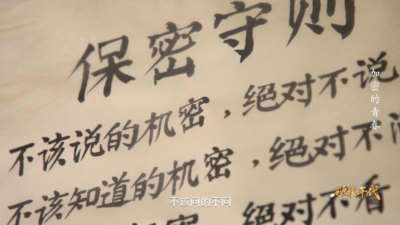 保密守则
不该说的机密，绝对不说
不该知道的机密，绝对不问
机密，绝对不看
加密的青春
不该问的不问